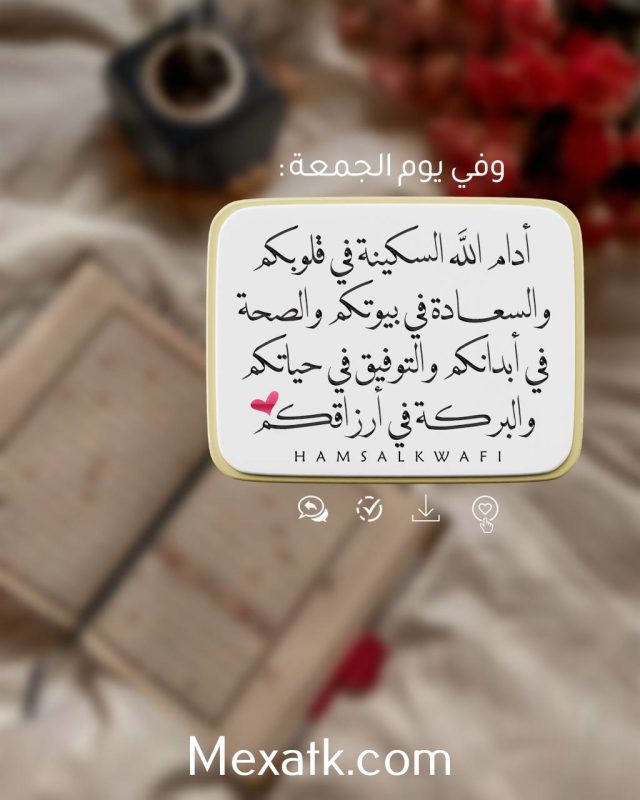 وفي يوم الجمعة :
أدام اللَّه السكينة في قلوبكم
والسعادة في بيوتكم والصحة
في أبدانكم والتوفيق في حياتكم
والبركة في أرزاقكم
HAMSALKWAFI
Mexatk.com